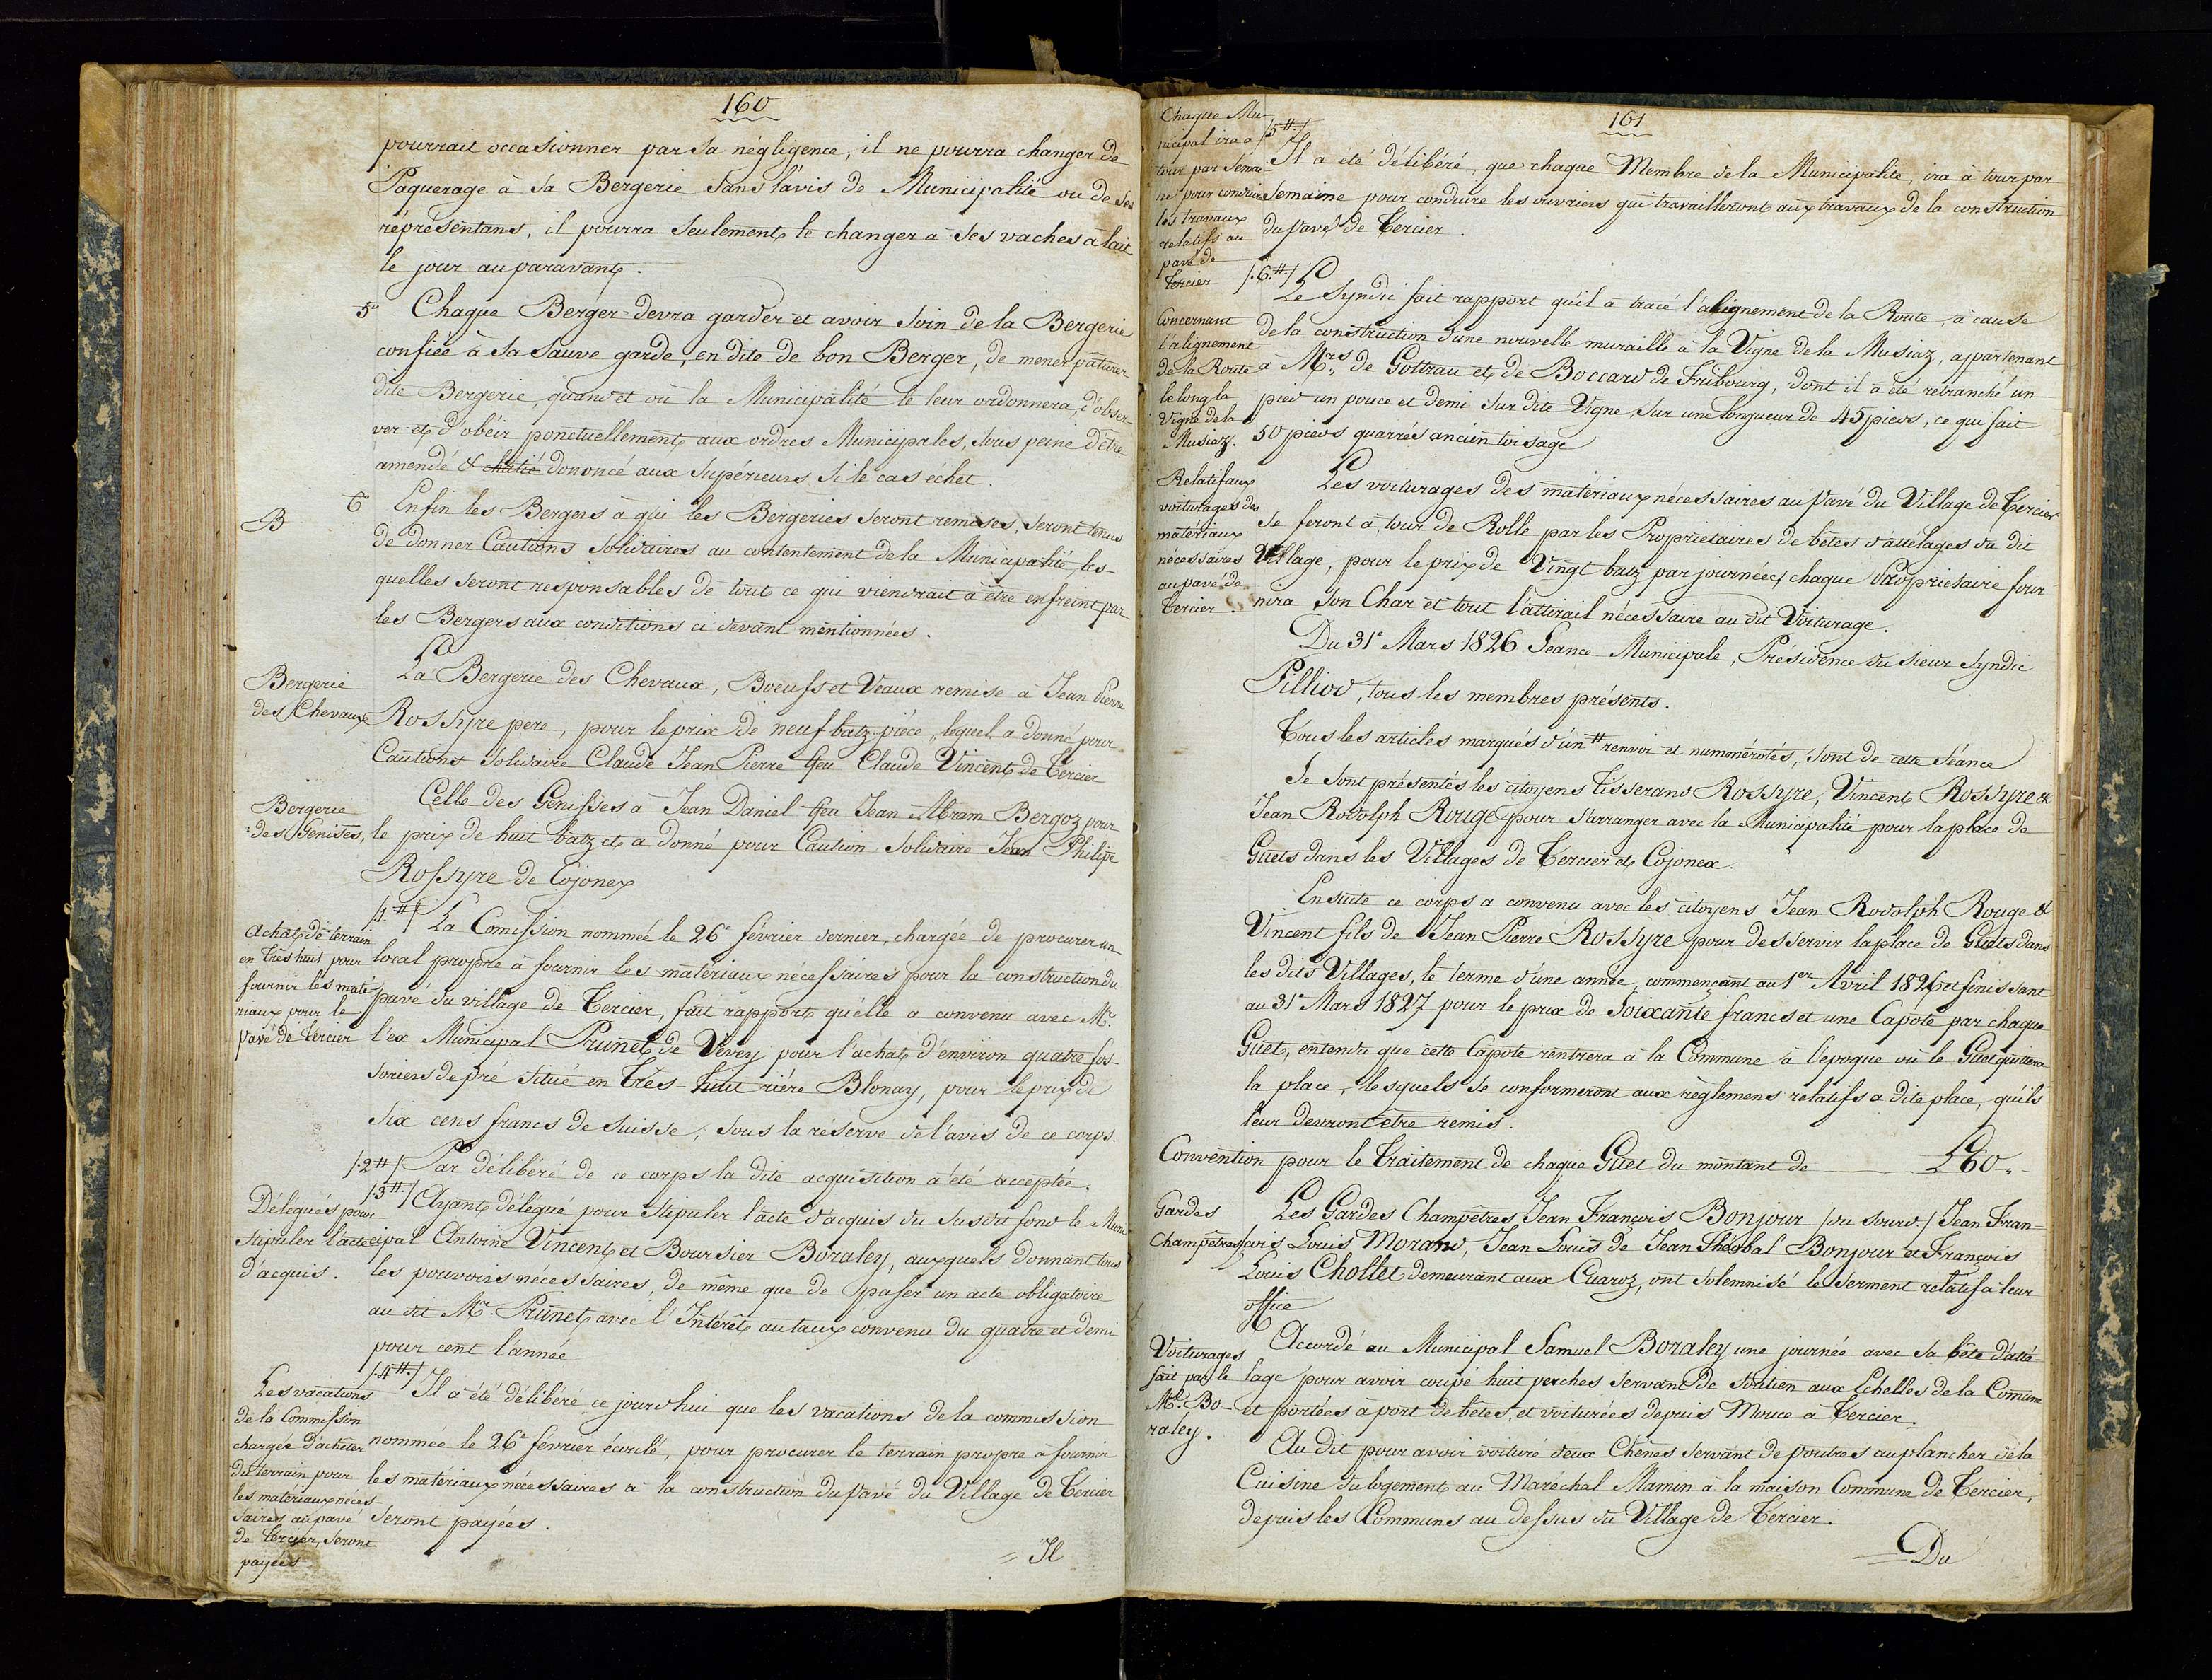 160
pourrait occasionner par sa négligence, il ne pourra changer de
Paquerage à sa Bergerie sans l'avis de Municipalité ou de ses
représentans, il pourra seulement le changer à ses vaches à lait
le jour auparavant.
5° Chaque Berger devra garder et avoir soin de la Bergerie
confiée à sa sauve garde, en dite de bon Berger, de mener paturer
dite Bergerie, quand et où la Municipalité le leur ordonnera, d'obser-
ver et d'obéir ponctuellement aux ordres Municipales, sous peine d'être
amendé & chatié dononcé aux supérieurs si le cas échet.
B
6 Enfin les Bergers à qui les Bergeries seront remises, seront tenus
de donner Cautions solidaires au contentement de la Municipalité, les-
quelles seront responsables de tout ce qui viendrait à être enfreint par
les Bergers aux conditions ci devant mentionnées.
Bergerie
des Chevaux
La Bergerie des Chevaux, Boeufs et Veaux remise à Jean Pierre
Rossyre pere, pour le prix de neuf batz pièce, lequel a donné pour
Cautions solidaire Claude Jean Pierre ffeu Claude Vincent de Tercier
Bergerie
des Genises,
Celle des Genisses à Jean Daniel ffeu Jean Abram Bergoz pour
le prix de huit batz et a donné pour Caution solidaire Jean Philipe
Rossyre de Cojonex
Achat de terrain
en Très huit pour
fournir les maté
riaux pour le
pavé de Tercier
/.1.#/ La Comission nommée le 26e février dernier, chargée de procurer un
local propre à fournir les matériaux nécessaires pour la construction du
pavé du village de Tercier, fait rapport qu'elle a convenu avec Mr.
l'ex Municipal Prunet de Vevey pour l'achat d'environ quatre fos-
soriers de pré situé en Très-huit rière Blonay, pour le prix de
six cens francs de Suisse, sous la réserve de l'avis de ce corps.
/.2#/ Par délibéré de ce corps la dite acquisition a été acceptée.
Délégués pour
stipuler l'acte
d'acquis.
/.3#./ Ayant délégué pour stipuler l'acte d'acquis du susdit fond le Muni
cipal Antoine Vincent et Boursier Boraley, auxquels donnant tous
les pouvoirs nécessaires, de même que de passer un acte obligatoire
au dit Mr. Prunet avec l'Intérêt au taux convenu du quatre et demi
pour cent l'année
Les vacations
de la Commission
chargée d'acheter
du terrain pour
les matériaux néces-
saires au pavé
de Tercier, seront
payées
/.4#./ Il a été délibéré ce jourdhui que les vacations de la commission
nommée le 26e février écoulé, pour procurer le terrain propre a fournir
les matériaux nécessaires à la construction du pavé du Village de Tercier
seront payées.
= Il
161
Chaque Mu-
nicipal ira a
tour par semai-
ne pour conduire
les travaux
relatifs au
pavé de
Tercier
/.5#./ Il a été délibéré, que chaque Membre de la Municipalité, ira à tour par
semaine pour conduire les ouvriers qui travailleront aux travaux de la construction
du pavé de Tercier.
Concernant
l'alignement
de la Route
le long la
Vigne de la
Musiaz.
/.6.#./ Le Syndic fait rapport qu'il a tracé l'alignement de la Route, à cause
de la construction d'une nouvelle muraille à la Vigne de la Musiaz, appartenant
à Mrs. de Gottrau et de Boccard de Fribourg, dont il a été retranché un
pied un pouce et demi sur dite Vigne, sur une longueur de 45 pieds, ce qui fait
50 pieds quarrés ancien toisage
Relatif aux
voiturages des
matériaux
nécessaires
au pavé de
Tercier.
Les voiturages des matériaux nécessaires au pavé du Village de Tercier
se feront à tour de Rolle par les Propriétaires de bêtes d'attelages du dit
Village, pour le prix de Vingt batz par journée, chaque Propriétaire four
nira son Char et tout l'attirail nécessaire au dit Voiturage.
Du 31e Mars 1826 Séance Municipale, Présidence du sieur Syndic
Pilliod, tous les membres présents.
Tous les articles marqués d'un # renvoi et numérotés, sont de cette Séance
Se sont présentés les citoyens Tisserand Rossyre, Vincent Rossyre &
Jean Rodolph Rouge pour s'arranger avec la Municipalité pour la place de
Guets dans les Villages de Tercier et Cojonex.
Ensuite ce corps a convenu avec les citoyens Jean Rodolph Rouge &
Vincent fils de Jean Pierre Rossyre pour desservir la place de Guets dans
les dits Villages, le terme d'une année, commençant au 1er Avril 1826 et finissant
au 31e Mars 1827 pour le prix de Soixante francs et une Capote par chaque
Guet, entendu que cette Capote rentrera à la Commune à l'époque où le Guet quittera
la place, lesquels se conformeront aux règlemens relatifs a dite place, qu'ils
leur devront être remis.
Convention pour le Traitement de chaque Guet du montant de L 60.-
Gardes
Champêtres
Les Gardes Champêtres Jean François Bonjour /du sourd/ Jean Fran-
çois Louis Morand, Jean Louis de Jean Théobal Bonjour et François
Louis Chollet demeurant aux Cuaroz, ont solemnisé le serment relatif à leur
office
Voiturages
fait par le
Ml. Bo-
raley.
Accordé au Municipal Samuel Boraley une journée avec sa bête d'atte-
lage pour avoir coupé huit perches servant de soutien aux Echelles de la Comune
et portées à port de bêtes, et voiturées depuis Mouce à Tercier.
Au dit pour avoir voituré deux Chênes servant de poutres au plancher de la
Cuisine du logement au Maréchal Mamin à la maison Commune de Tercier,
depuis les Communs au dessus du Village de Tercier.
Du